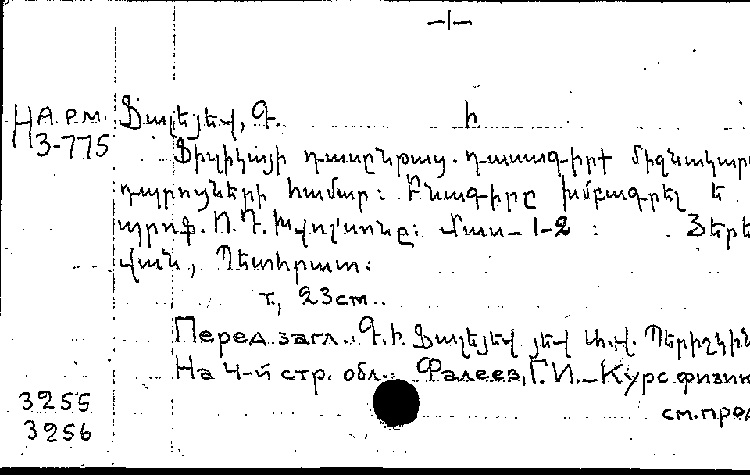 -1-
На.р.м.
3-775
Ֆալեյեվ, Գ. Ի
Ֆիզիկայի դասընթաց. դասագիրք միջնակար
դպրոցների համար: Բնագիրը խմբագրել ե
պրոֆ. Ն.Պ. Մաս 1-2: Յերե
վան, Պետհրատ:
т, 23cm.
Перед загл. Գ.Ի. Ֆալեյեվ յեվ Ա.Վ. Պերիշկին
На 4-й стр. обл.: Фалеев, Г.И.-Курс физик
3255
3256
см.прод